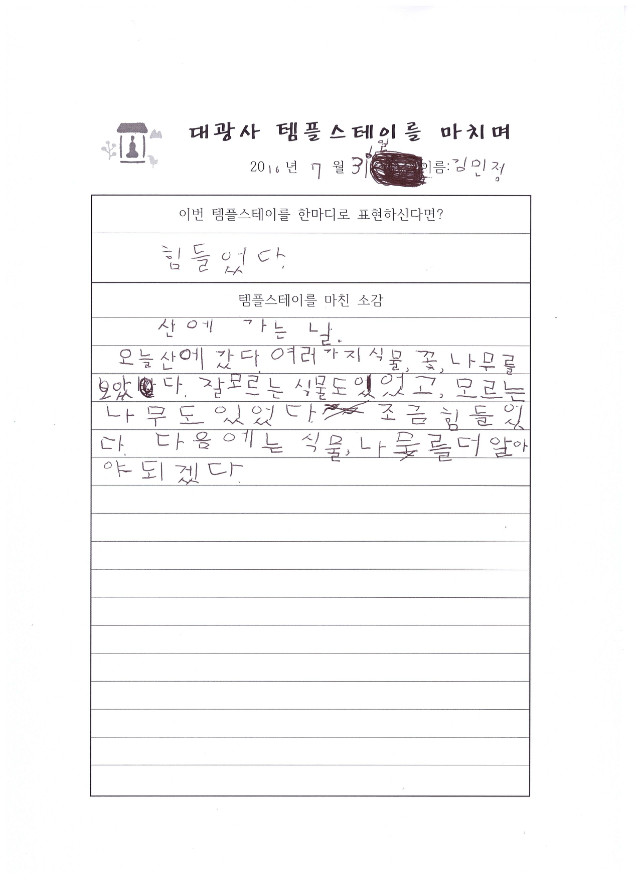 대광사 템플스테이를 마치며
2016년 7월 31일 이름:김민정
이번 템플스테이를 한마디로 표현하신다면?
힘들었다.
템플스테이를 마친 소감
산에 가는 날.
오늘 산에 갔다. 여러가지 식물, 꽃, 나무를
보았다. 잘모르는 식물도 있었고, 모르는
나무도 있었다. 조금 힘들었
다. 다음에는 식물, 나무를 더 알아
야 되겠다.